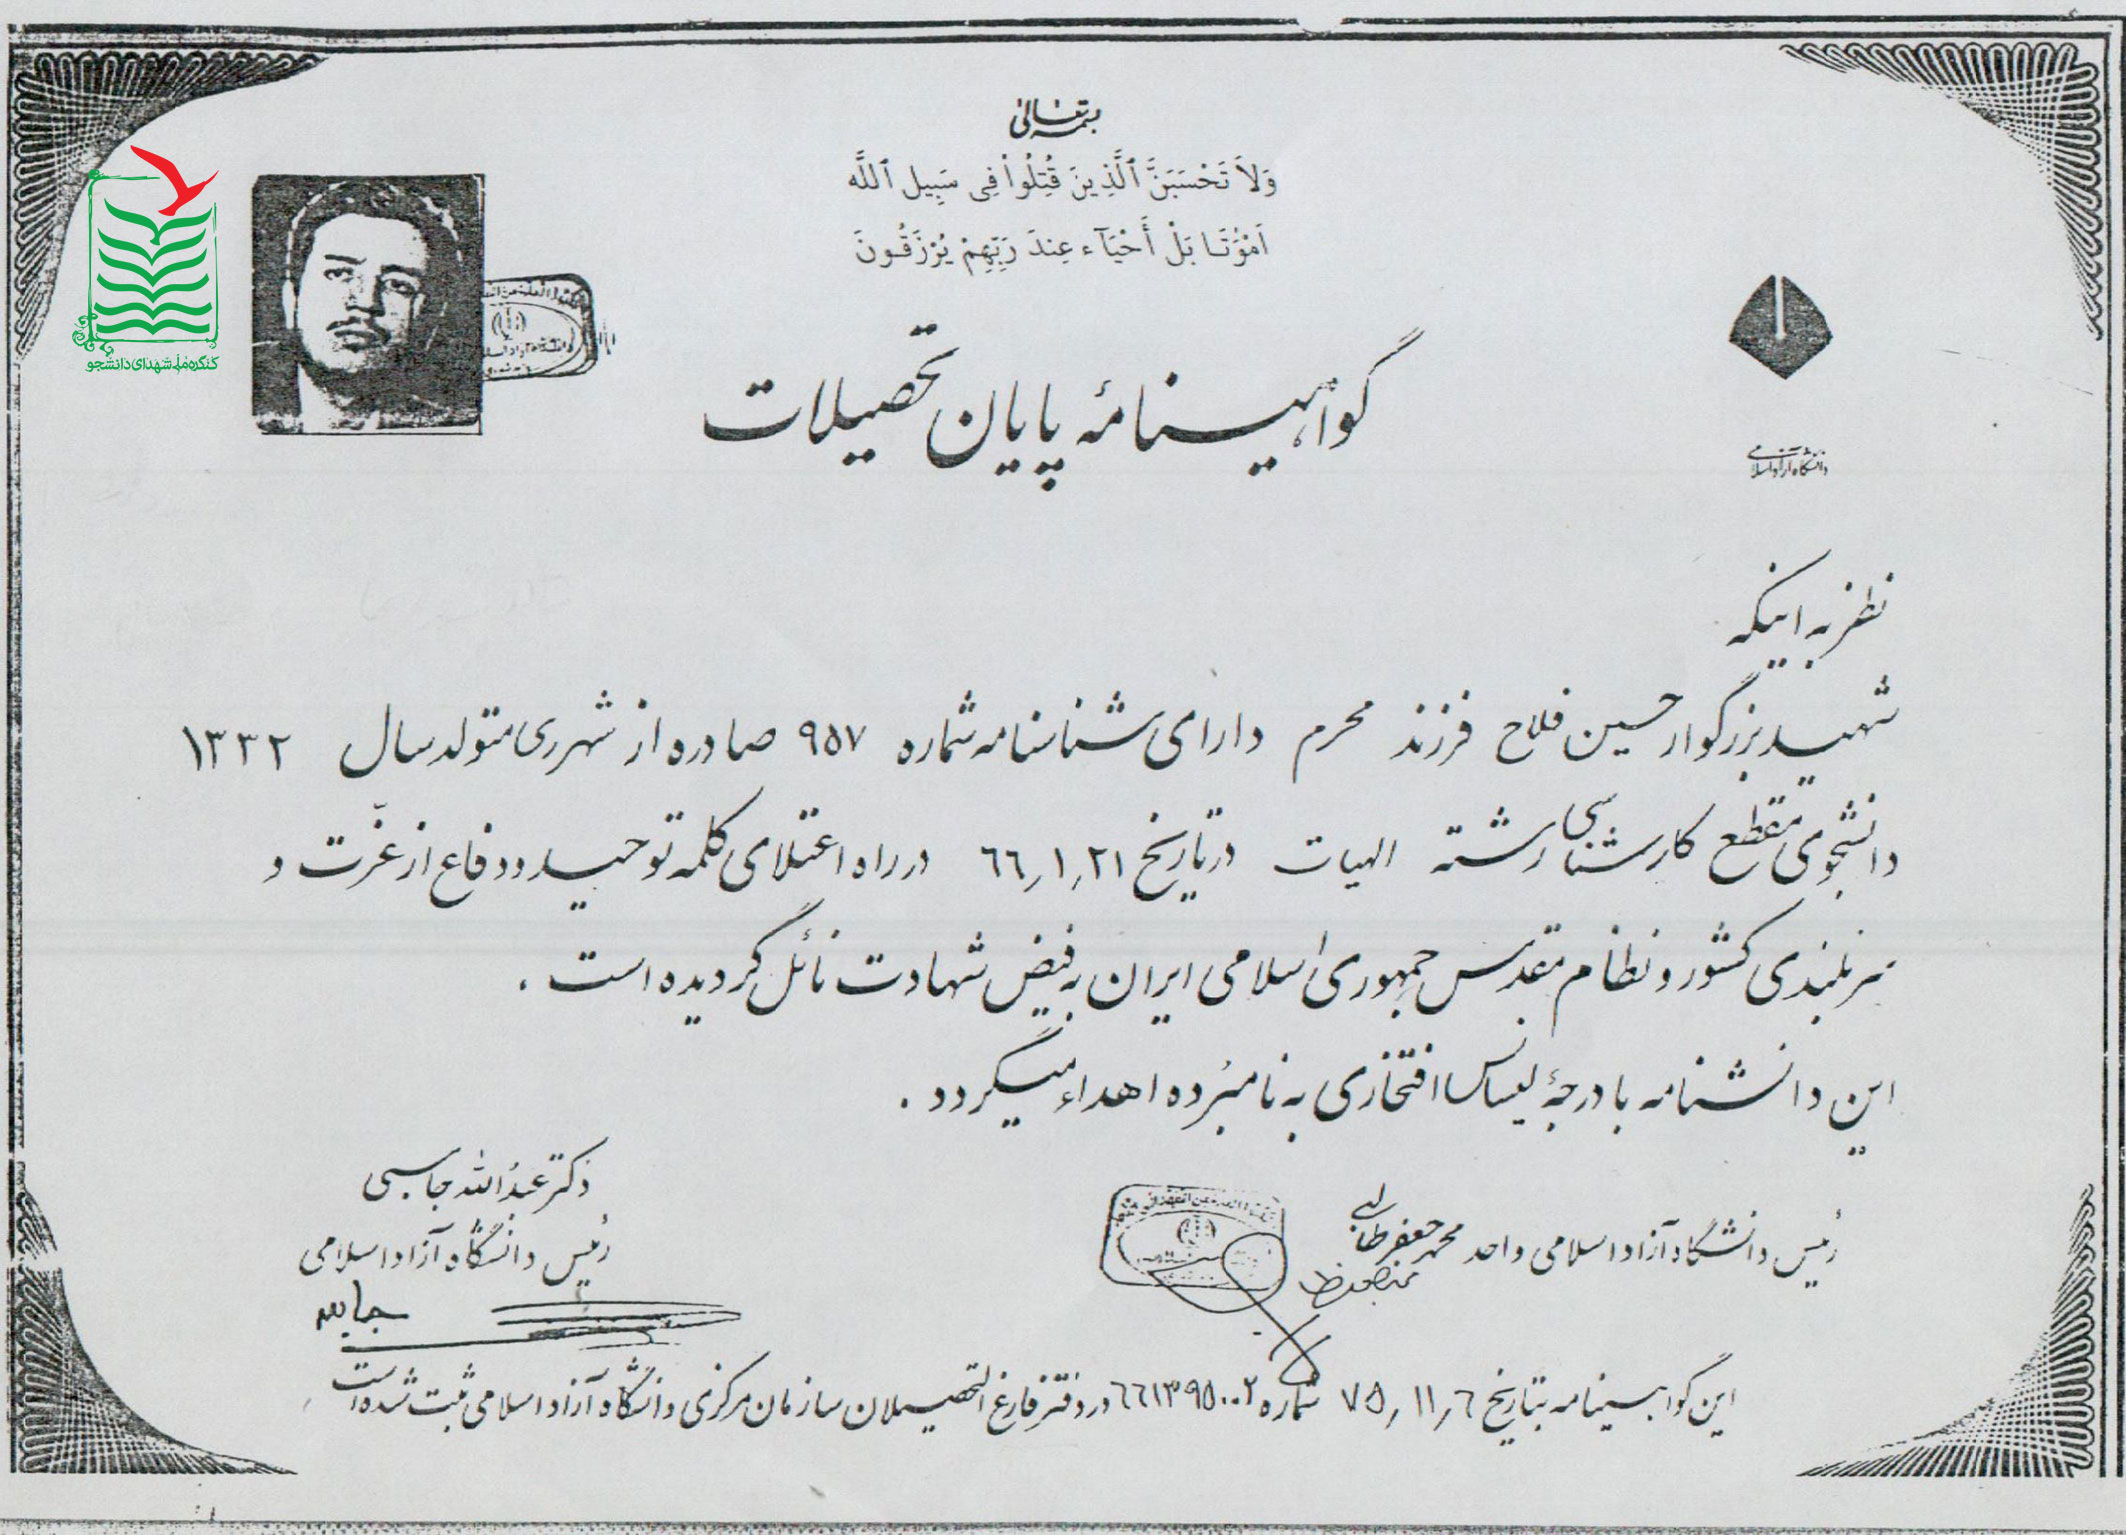 بسمه تعالی
وَلاَ تَحْسَبَنَّ ٱلَّذِينَ قُتِلُواْ فِى سَبِيلِ ٱللَّه
اَمْوَٰتَا بَلْ أَحْيَآء عِندَ رَبِّهِمْ يُرْزَقُونَ
کنگره ملی شهدای دانشجو
گواهینامهٔ پایان تحصیلات
دانشگاه آزاد اسلامی
نظر به اینکه
شهید بزرگوار حسین فلاح فرزند محرم دارای شناسنامه شماره ۹۵۷ صادره از شهرری متولد سال ۱۳۳۲
دانشجوی مقطع کارشناسی رشته الهیات در تاریخ ٦٦٫۱٫۲۱ در راه اعتلای کلمه توحید و دفاع از عزّت و
سربلندی کشور و نظام مقدس جمهوری اسلامی ایران به فیض شهادت نائل گردیده است .
این دانشنامه با درجهٔ لیسانس افتخاری به نامبرده اهداء میگردد .
دکتر عبدالله جاسبی
رئیس دانشگاه آزاد اسلامی
رئیس دانشگاه آزاد اسلامی واحد محمد جعفر طالبی
این گواهینامه بتاریخ ۷۵٫۱۱٫٦ شماره ٦٦۱۳۹۵۰۰۲ در دفتر فارغ التحصیلان سازمان مرکزی دانشگاه آزاد اسلامی ثبت شده است